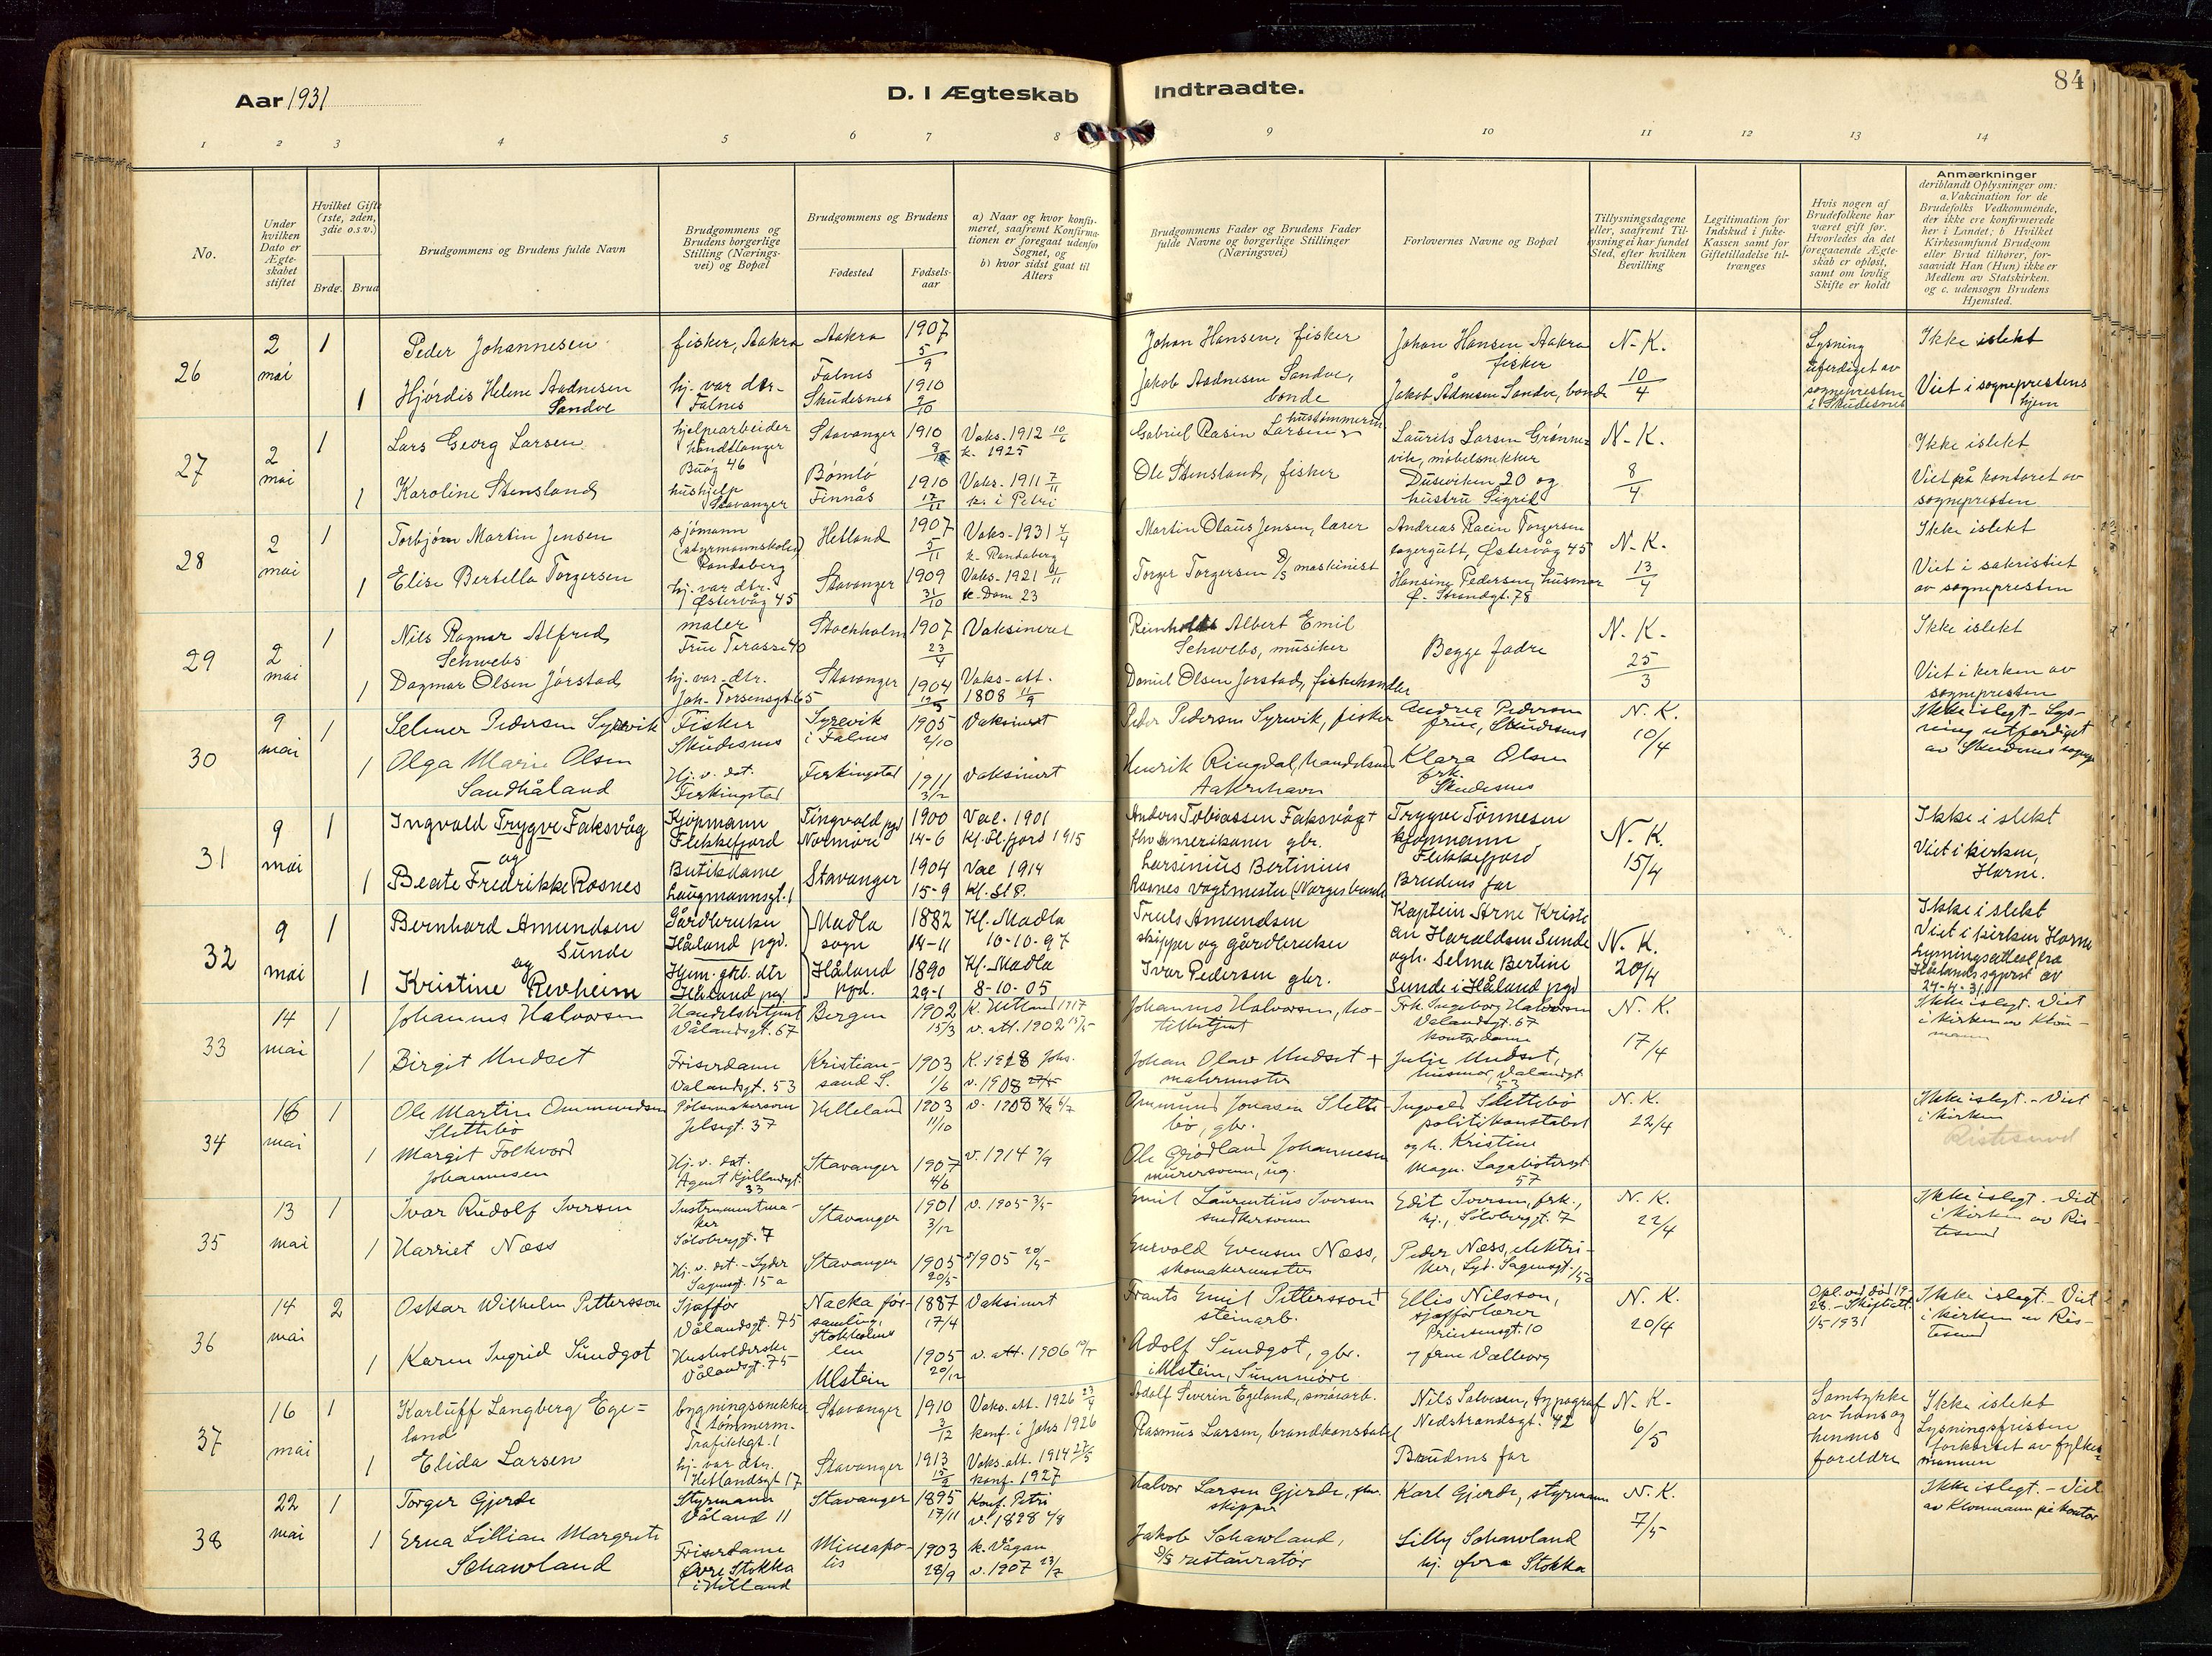 84
Aar 1931
D. I Ægteskab Indtraadte.
1 2 3 4 5 6 7 8 9 10 11 12 13 14
No.
Under hvilken Dato er Ægte-skabet stiftet
Hvilket Gifte (1ste, 2den, 3die o.s.v.)
Brdg. Brud
Brudgommens og Brudens fulde Navn
Brudgommens og Brudens borgerlige Stilling (Nærings-vei) og Bopæl
Brudgommens og Brudens
Fødested
Fødsels-aar
a) Naar og hvor konfir-meret, saafremt Konfirma-tionen er foregaat udenfor Sognet, og b) hvor sidst gaat til Alters
Brudgommens Fader og Brudens Fader fulde Navne og borgerlige Stillinger (Næringsvei)
Forlovernes Navne og Bopæl
Tillysningsdagene eller, saafremt Til-lysning ei har fundet Sted, efter hvilken Bevilling
Legitimation for Indskud i Enke-Kassen samt for Giftetilladelse til-trænges
Hvis nogen af Brudefolkene har været gift før. Hvorledes da det foregaaende Ægte-skab er opløst, samt om lovlig Skifte er holdt
Anmærkninger
deriblandt Oplysninger om: a. Vakcination for de Brudefolks Vedkommende, der ikke ere konfirmerede her i Landet; b Hvilket Kirkesamfund Brudgom eller Brud tilhører, for-saavidt Han (Hun) ikke er Medlem av Statskirken. og c. udensogn Brudens Hjemsted.
26
2 mai
1
Peder Johannesen
fisker, Aakra
Aakra
1907 5/9
Johan Hansen, fisker
Johan Hansen Aakra fisker
N-K. 10/4
Lysning utferdiget av sognepresten i Skudesnes
Ikke islekt
Viet i sogneprestens hjem
1
Hjørdis Helene Aadnesen Sandve
hj. var dtr- Falnes
Falnes Skudesnes
1910 9/10
Jakob Aadnesen Sandve, bonde
Jakob Ådnesen Sandve, bonde
27
2 mai
1
Lars Georg Larsen
hjelpearbeider håndtlanger Buøg 46
Stavanger
1910
Vaks-1912 10/6 k. 1925
Gabriel Rasin Larsen hustømmerm
Laurits Larsen Grønne-vik, møbelsnekker
Duseviken 20 og hustru Sigrid
N-K. 8/4
Ikke islekt
Viet på kontoret av sognepresten
1
Karoline Stensland
hushjelp Stavanger
Bømlø Finnås
1910 17/11
Vaks-1911 7/11 k. i Petri
Ole Stensland, fisker
28
2 mai
1
Torbjørn Martin Jensen
sjømann (styrmannskole) Randaberg
Hetland
1907 5/11
Vaks-1931 4/4 k. Randaberg
Martin Olaus Jensen, lærer
Andreas Racin Torgersen lagergutt, Østervåg 45
N-K. 13/4
Ikke islekt
Viet i sakristiet av sognepresten
1
Elise Bertella Torgersen
hj. var dtr. Østervåg 45
Stavanger
1909 31/10
Vaks-1921 k. Dom 23
Torger Torgersen D/S maskinist
Hansine Pedersen, husmor Ø. Strandgt. 78
29
2 mai
1
Nils Ragnar Alfred Schwebs
maler Frue Terasse 40
Stockholm
1907 23/4
Vaksineret
Reinholdt Albert Emil Schwebs, musiker
Begge fædre
N-K- 25/3
Ikke islekt
Viet i kerken av sognepresten
1
Dagmar Olsen Jørstad
hj. var-dtr. Joh-Torsensgt. 65
Stavanger
1904
Vaks-att. 1808 11/9
Daniel Olsen Jørstad, fiskehandler
30
9 mai
1
Selmer Pedersen Syrevik
Fisker Skudesnes
Syrevik i Falnes
1905 2/10
Vaksinert
Peder Pedersen Syrevik, fisker
Andrea Pedersen frue, Skudesnes
N. K. 10/4
Ikke islegt - Lys-ning utferdiget av Skudenes sognepr
1
Olga Marie Olsen Sandhåland
Hj. v. dat. Ferkingstad
Ferkingstad
1911 3/12
Vaksinert
Henrik Ringdal, handelsm Aakrehavn
Klara Olsen frk. Skudesnes
31
9 mai
1
Ingvald Trygve Faksvåg og
Kjøpmann Flekkefjord
Tingvold pgd Normøre
1900 14-6
Vac. 1901 Kf. Fl.fjord 1915
Anders Tobiassen Faksvåg + fhv Amerikaner gbr.
Trygve Tønnesen kjøpmann Flekkefjord
N. K. 15/4
Ikke i slekt
Viet i kirken, Horne.
1
Beate Fredrikke Rosnes
Butikdame Laugmannsgt. 1
Stavanger
1904 15-9
Vac 1914 Kf. St P.
Larsinius Bertinius Rosnes vagtmester (Norges bank
Brudens far
32
9 mai
1
Bernhard Amundsen Sunde og
Gårdbruker Håland pgd.
Madla sogn
1882 14-11
Kf. Madla 10-10-97
Truls Amundsen skipper og gårdbruker
Kaptein Arne Kristi an Haraldsen Sunde ogh. Selma Bertine Sunde i Håland pgd
N. K. 20/4
Ikke i slekt
Viet i kirken Horne
Lysningsattest fra Hålands sgprst av 24-4-31
1
Kristine Revheim
Hjem. gbr. dtr Håland pgd
Håland pgd.
1890 29-1
Kf. Madla 8-10-05
Ivar Pedersen gbr.
33
14 mai
1
Johannes Halvorsen
Handelsbetjent Vålandsgt. 67
Bergen
1902 15/3
K. Hetland 1917 v. att. 1902
Johannes Halvorsen, ho-tellbetjent
Frk. Ingeborg Halvorsen Vålandsgt. 67 kontordame
N. K. 17/4
Ikke islegt. Viet i kirken av Klon-mann
1
Birgit Undset
Friserdame Vålandsgt. 53
Kristian-sand S.
1903 1/6
K. 1928 Johs. v. 1908
Johan Olav Undset + malermester
Julie Undset, husmor, Vålandsgt 53
34
16 mai
1
Ole Martin Ommundsen Slettebø
Pølsemakersvenn Jelsagt. 37
Helleland
1903 11/10
v. 1908
Ommund Jonasen Slette-bø, gbr.
Ingvald Slettebø politikonstabel og h. Kristine Magn. Lagabøtersgt 57
N. K. 22/4
Ikke islegt. - Viet i kirken
Ristesund
1
Margit Folkvord Johannesen
Hj. v. dat. Agent Kjellandsgt. 33
Stavanger
1907 4/6
v. 1914 7/9
Ole Grødland Johannesen murersvenn, ug.
35
13 mai
1
Ivar Rudolf Iversen
Instrumentma-ker Sølvberggt. 7
Stavanger
1901 3/12
v. 1905 3/5
Emil Laurentius Iversen snedkersvenn
Edit Iversen, frk., hj., Sølvberggt. 7
N. K. 22/4
Ikke islegt. Viet i kirken av Ris-tesund
1
Harriet Næss
Hj. v. dat. - Lyder Sagensgt. 15 a
Stavanger
1905 20/5
Enevold Evensen Næss, skomakermester
Peder Næss, elektri-ker, Lyd. Sagensgt. 15 a
36
14 mai
2
Oskar Wilhelm Pettersson
Sjaffør Vålandsgt. 75
Nacka för-samling, Stokholms len
1887 17/4
Vaksinert
Frants Emil Pettersson + steinarb.
Ellis Nilsson, sjafførlærer Prinsensgt. 10 y frue Valborg
N. K. 20/4
Opl. ved død 19-28. - Skifteatt. 1/5 1931
Ikke islegt. - Viet i kirken av Ris-tesund
1
Karen Ingrid Sundgot
Husholderske Vålandsgt. 75
Ulstein
1905 20/12
v. att. 1906
Adolf Sundgot, gbr. i Ulstein, Sunnmøre
37
16 mai
1
Karluff Langberg Ege=land
bygningssnekker tømmerm. Trafikkgt. 1
Stavanger
1910 3/12
Vaks. att. 1926 23/4 konf. i Johs 1926
Adolf Severin Egeland, småarb.
Nils Salvesen, typograf Nedstrandsgt. 42
N-K- 6/5
Samtykke av hans og hennes foreldre
Ikke islekt
Lysningsfristen forkortet av fylkes-mannen
1
Elida Larsen
hj. var dtr. Hetlandsgt 17
Stavanger
1913
Vaks. att. 1914 27/5 konf. 1927
Rasmus Larsen, brandkonstabel
Brudens far
38
22 mai
1
Torger Gjerde
Styrmann Våland 11
Stavanger
1895 17/11
Konf. Petri v. 1898
Halvor Larsen Gjerde, fhv. skipper
Karl Gjerde, styrmann
N. K. 7/5
Ikke islegt. - Viet av Klonmann på kontor
1
Erna Lillian Margrete Schawland
Friserdame Øvre Stokka i Hetland
Mineapo-lis
1903 28/9
k. Vågan v. 1907 23/7
Jakob Schawland, D/S restauratør
Lilly Schawland hj. øvre Stokka